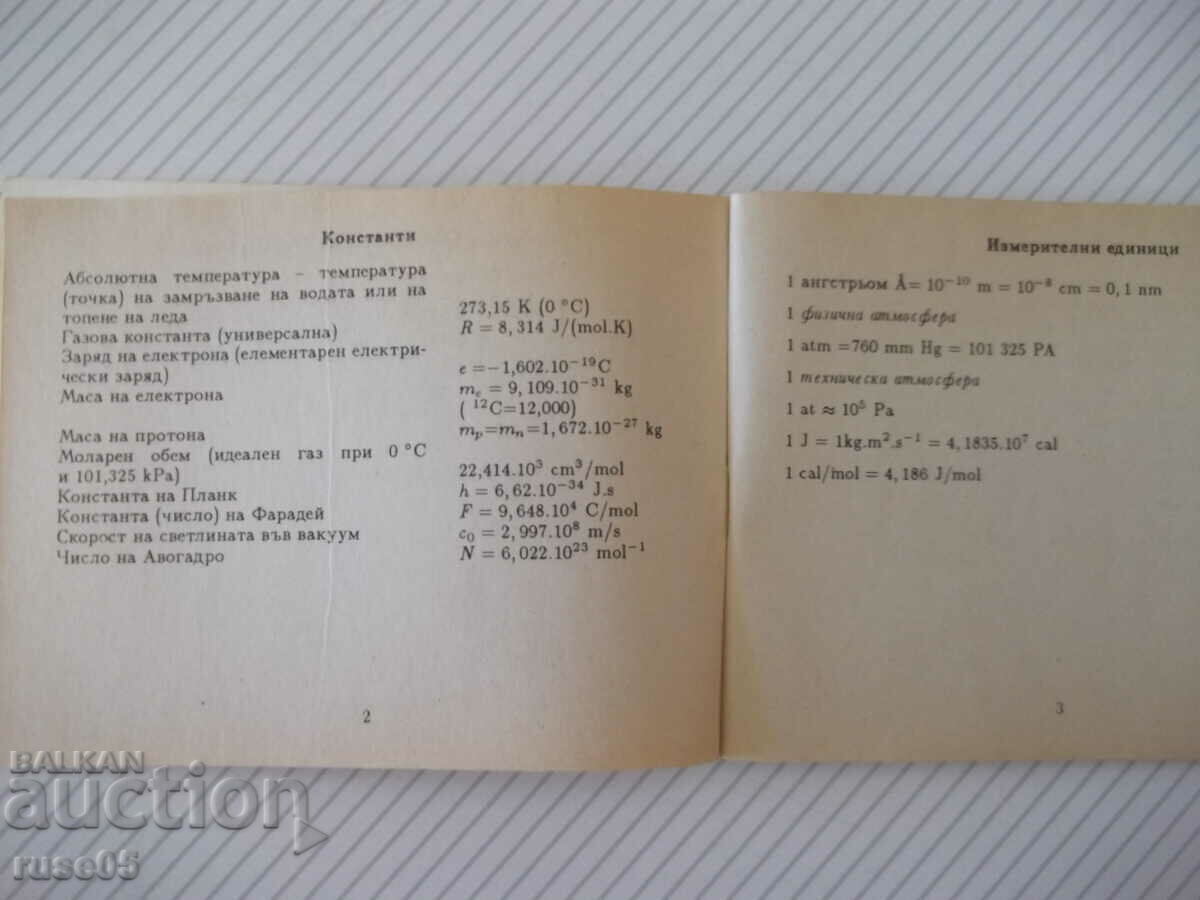 Константи
Абсолютна температура – температура
(точка) на замръзване на водата или на
топене на леда 273,15 K (0 °C)
Газова константа (универсална) R = 8, 314 J/(mol.K)
Заряд на електрона (елементарен електри-
чески заряд) e =−1,602.10⁻¹⁹C
Маса на електрона mₑ = 9, 109.10⁻³¹ kg
( ¹²C=12,000)
Маса на протона mₚ=mₙ=1,672.10⁻²⁷ kg
Моларен обем (идеален газ при 0 °C
и 101,325 kPa) 22,414.10³ cm³/mol
Константа на Планк h = 6,62.10⁻³⁴ J.s
Константа (число) на Фарадей F = 9,648.10⁴ C/mol
Скорост на светлината във вакуум c₀ = 2,997.10⁸ m/s
Число на Авогадро N = 6,022.10²³ mol⁻¹
2
Измерителни единици
1 ангстрьом Å= 10⁻¹⁰ m = 10⁻⁸ cm = 0, 1 nm
1 физична атмосфера
1 atm =760 mm Hg = 101 325 PA
1 техническа атмосфера
1 at ≈ 10⁵ Pa
1 J = 1kg.m².s⁻¹ = 4,1835.10⁷ cal
1 cal/mol = 4, 186 J/mol
3
BALKAN
auction
ruse05